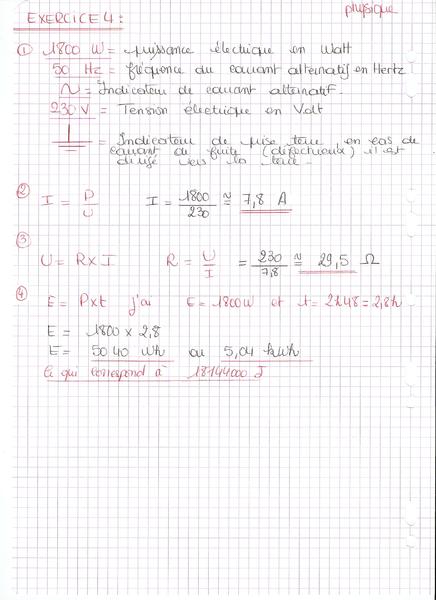 physique
EXERCICE 4 :
① 1800 W = puissance électrique en Watt
50 Hz = fréquence du courant alternatif en Hertz
~ = Indicateur de courant alternatif.
230 V = Tension électrique en Volt
⏚ = Indicateur de prise terre, en cas de
courant de fuite (défectueux) il est
dirigé vers la terre.
② I = P/U I = 1800/230 ≈ 7,8 A
③
U = R x I R = U/I = 230/7,8 ≈ 29,5 Ω
④ E = P x t j'ai E = 1800W et t = 2h48 = 2,8h
E = 1800 x 2,8
E = 5040 Wh ou 5,04 kWh
ce qui correspond à 18144000 J